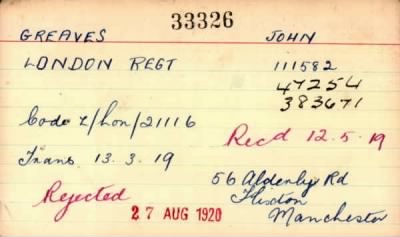 33326
GREAVES JOHN
LONDON REGT 111582
47254
383671
Code L/Lon/21116
Recd 12.5.19
Trans 13.3.19
56 Aldenly Rd
Rejected
Flixton
27 AUG 1920
Manchester